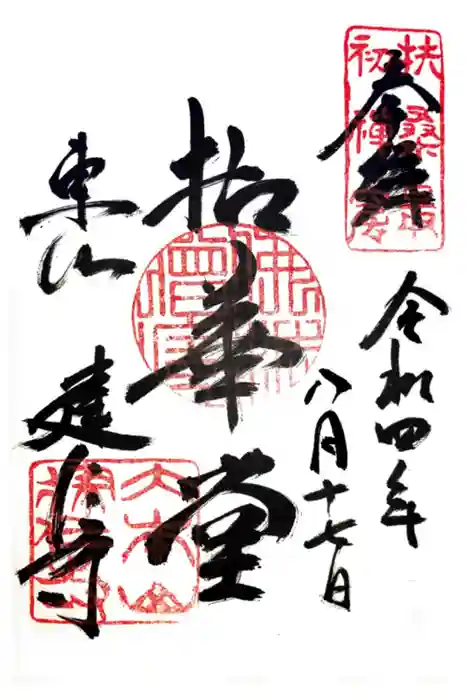 奉拝
扶桑最
初禅窟
令和四年
八月十七日
拈華堂
東山
建仁寺
大本山